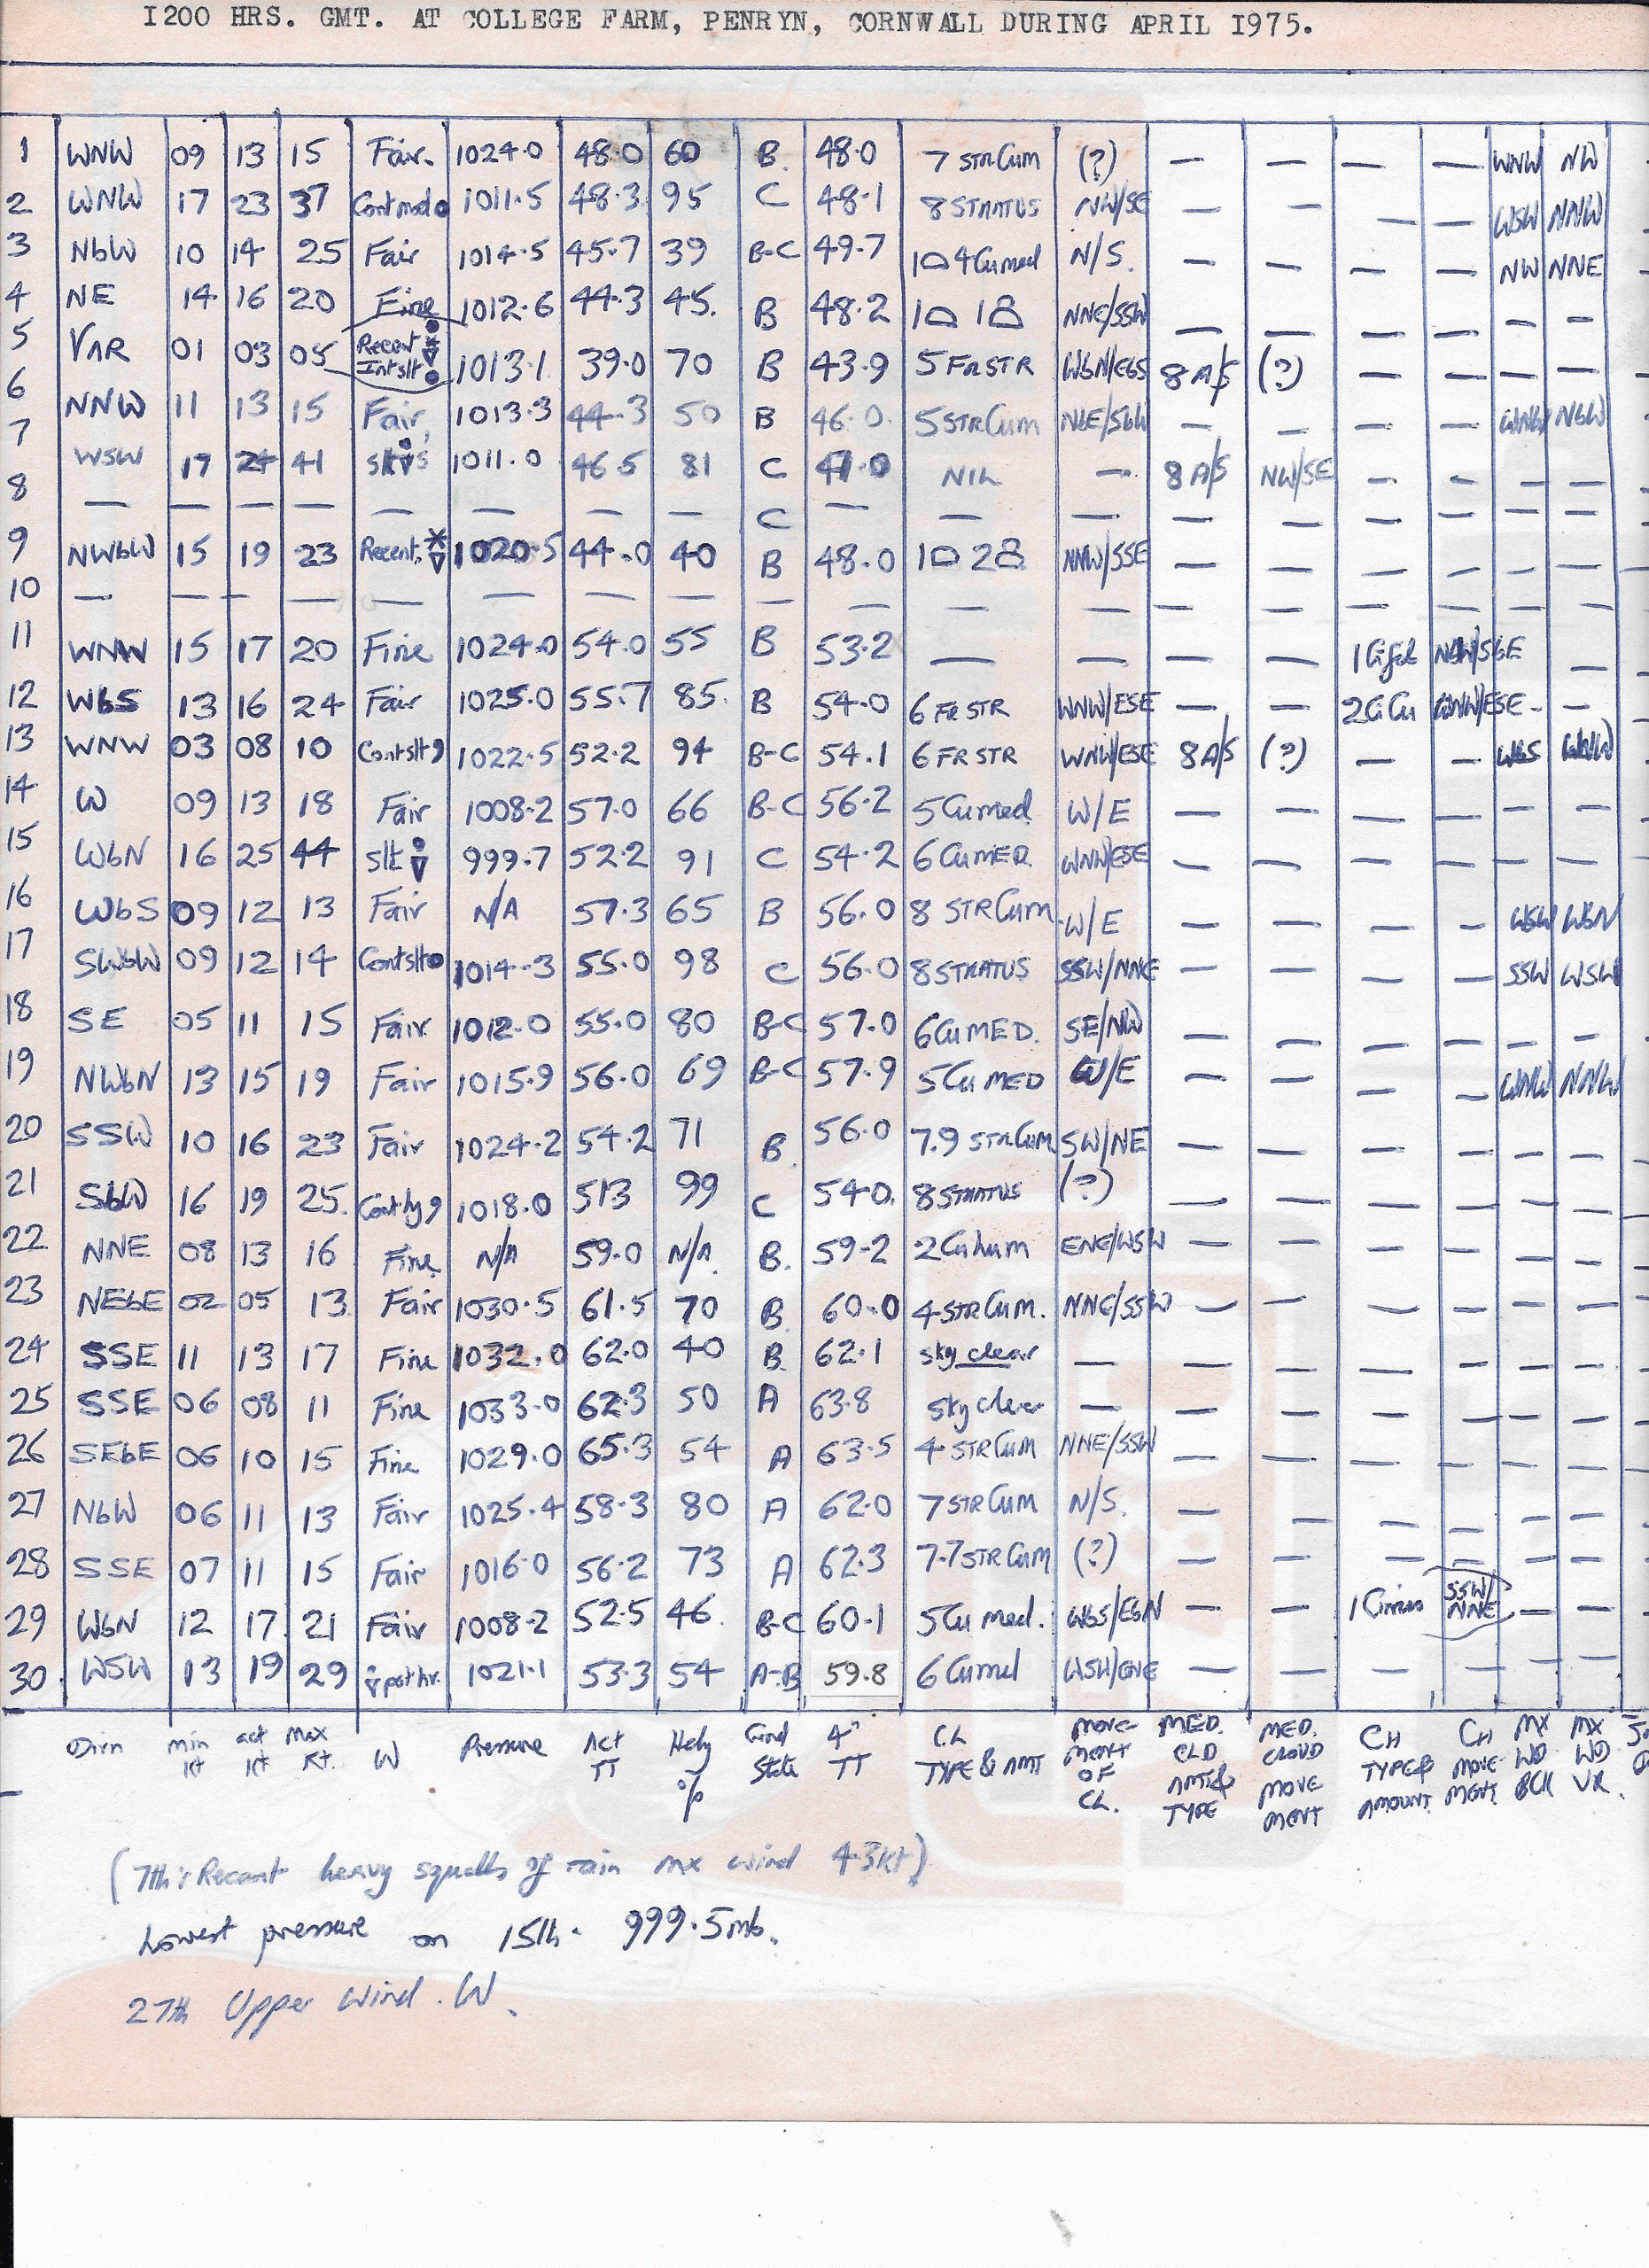 1200 HRS. GMT. AT COLLEGE FARM, PENRYN, CORNWALL DURING APRIL 1975.
1 WNW 09 13 15 Fair. 1024.0 48.0 60 B. 48.0 7 STRCum (?) — — — — WNW NW
2 WNW 17 23 37 Contmod● 1011.5 48.3 95 C 48.1 8 STRATUS NW/SE — — — — WSW NNW
3 NbW 10 14 25 Fair 1014.5 45.7 39 B-C 49.7 1⌓ 4Cumed N/S. — — — — NW NNE
4 NE 14 16 20 Fine 1012.6 44.3 45. B 48.2 1⌓ 1 NNE/SSW — — — — — —
5 VAR 01 03 05 Recent Intslt● 1013.1 39.0 70 B 43.9 5 FRSTR WbN/EbS 8 A/S (?) — — — —
6 NNW 11 13 15 Fair, 1013.3 44.3 50 B 46.0 5STRCum NbE/SbW — — — — WNW NbW
7 WSW 17 24 41 slt 1011.0 46.5 81 C 47.0 NIL — 8 A/S NW/SE — — — —
8 — — — — — — — — C — — — — — — — — —
9 NWbW 15 19 23 Recent, 1020.5 44.0 40 B 48.0 1⌓ 2 NNW/SSE — — — — — —
10 — — — — — — — — — — — — — — — — — —
11 WNW 15 17 20 Fine 1024.0 54.0 55 B 53.2 — — — — 1 —
12 WbS 13 16 24 Fair 1025.0 55.7 85. B 54.0 6 FRSTR WNW/ESE — — 2CiCu WNW/ESE - —
13 WNW 03 08 10 Contslt, 1022.5 52.2 94 B-C 54.1 6 FRSTR WNW/ESE 8 A/S (?) — — WbS WNW
14 W 09 13 18 Fair 1008.2 57.0 66 B-C 56.2 5Cumed W/E — — — — — —
15 WbN 16 25 44 slt 999.7 52.2 91 C 54.2 6 CuMED. WNW/ESE — — — — — —
16 WbS 09 12 13 Fair N/A 57.3 65 B 56.0 8 STRCum W/E — — — — WSW WbN
17 SWbW 09 12 14 Contslt● 1014.3 55.0 98 C 56.0 8STRATUS SSW/NNE — — — — SSW WSW
18 SE 05 11 15 Fair 1012.0 55.0 80 B-C 57.0 6CuMED. SE/NW — — — — — —
19 NWbN 13 15 19 Fair 1015.9 56.0 69 B-C 57.9 5Cu MED W/E — — — — WNW NNW
20 SSW 10 16 23 Fair 1024.2 54.2 71 B. 56.0 7.9 STRCum SW/NE — — — — — —
21 SbW 16 19 25. Conthy, 1018.0 513 99 C 540. 8STRATUS (?) — — — — — —
22 NNE 08 13 16 Fine N/A 59.0 N/A. B. 59-2 2Cuhum ENE/WSW — — — — — —
23 NEbE 02 05 13 Fair 1030.5 61.5 70 B 60.0 4STRCum. NNE/SSW — — — — — —
24 SSE 11 13 17 Fine 1032.0 62.0 40 B. 62.1 sky clear — — — — — — —
25 SSE 06 08 11 Fine 1033.0 62.3 50 A 63.8 Sky clear — — — — — — —
26 SEbE 06 10 15 Fine 1029.0 65.3 54 A 63.5 4 STRCum NNE/SSW — — — — — —
27 NbW 06 11 13 Fair 1025.4 58.3 80 A 62.0 7STRCum N/S. — — — — — —
28 SSE 07 11 15 Fair 1016.0 56.2 73 A 62.3 7.7STRCum (?) — — — — — —
29 WbN 12 17 21 Fair 1008.2 52.5 46. B-C 60.1 5Cu med. WbS/EbN — — 1 Cirrus SSW/NNE — —
30. WSW 13 19 29 past hr. 1021.1 53.3 54 A-B 59.8 6 Cumed WSW/ENE — — — — — —
Dirn min Kt act Kt max Kt. W Pressure Act TT Hety % Grnd State 4" TT CL TYPE & AMT MOVE- MENT OF CL. MED. CLD AMT& TYPE MED. CLOUD MOVE MENT CH TYPE& AMOUNT. CH MOVE- MENT. MX WD BCK MX WD VR.
(7th: Recent heavy squalls of rain mx wind 43kt)
Lowest pressure on 15th. 999.5mb.
27th Upper Wind. W.